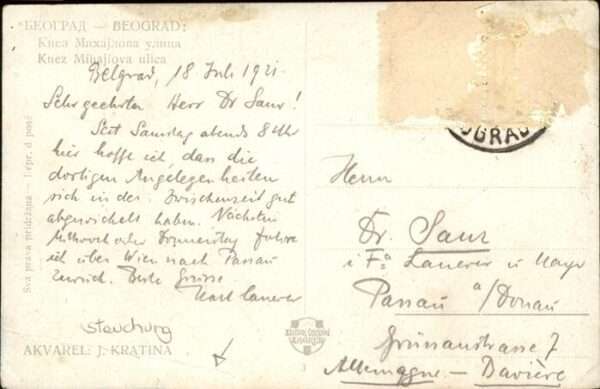 БЕОГРАД — BEOGRAD:
Кнеа Михајлова улица
Knez Mihajlova ulica
Belgrad, 18 Juli 1921.
Sehr geehrter Herr Dr Saur!
Seit Samstag abends 8 Uhr
hier hoffe ich, dass die
dortigen Angelegenheiten
sich in der Zwischenzeit gut
abgewickelt haben. Nächsten
Mittwoch oder Donnerstag fahre
ich über Wien nach Passau
zurück. Beste Grüsse
Karl Lanerer
steuchurg
AKVAREL: J. KRATINA
Sva prava pridržana — Repr. d post
OGRAD
Herrn
Dr. Saur
i Fa Lanerer u Mayer
Passau a/Donau
Grünaustrasse 7
Allemagne — Bavière